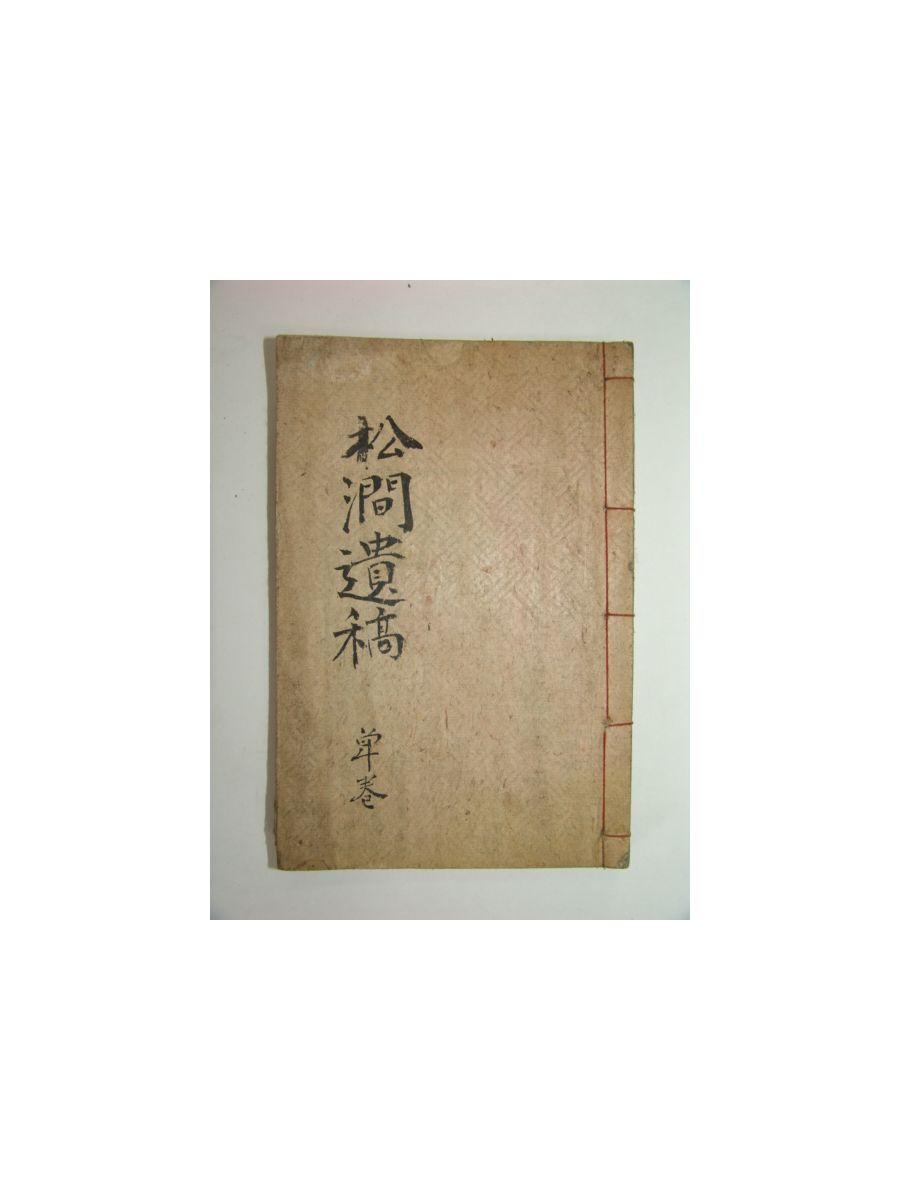 松澗遺稿
單卷